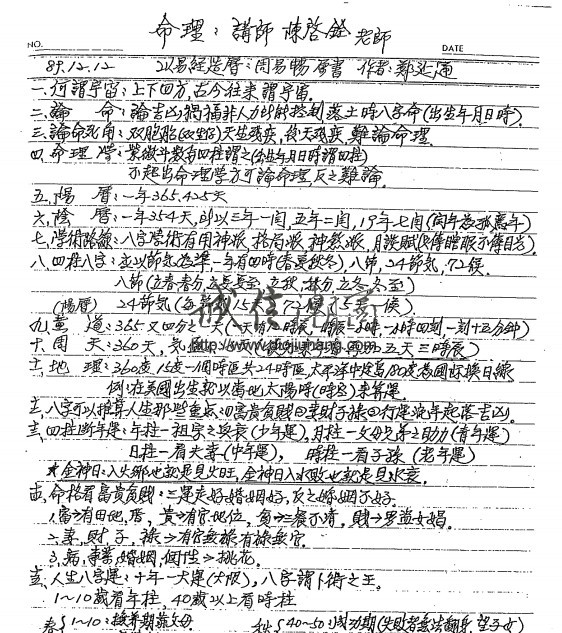 命理：講師 陳啓銓老師
NO. DATE
89.12.12 以易經造曆：周易暢 書 作者：鄭
一.何謂宇宙：上下四方，古今往來謂宇宙。
二.論 命：論吉凶禍福非人力所能控制 落土時八字命(出生年月日時)。
三.論命死角：双胞胎(双生仔)天生殘疾，後天殘疾，難論命理
四.命理學：紫微斗數和四柱謂之(出生年月日時謂四柱)
不起出命理學方可論命理，反之難論。
五.陽 曆：一年365.425天
六.陰 曆：一年354天，所以三年一閏，五年二閏，19年七閏
七.學術路線：八字學術有用神派，格局派，神煞派，月談賦
八.四柱八字：並以節気為準，一年有四時(春夏秋冬)，八節，24節気，72候。
八節(立春春分，立夏夏至，立秋，秋分，立冬，冬至)
(陽曆) 24節気 15天 72候 5天一候
九.黃 道：365又四分之一天 一時四刻，一刻十五分鐘)
十.周 天：360天， 五天三時辰)
十一.地 理：360度，15度一個時區共24時區，太平洋中這為180度為國際換日線
例：在美國出生就以當地太陽時(時區)來算運。
十二.八字可以推算人生那些重點：(1)富貴貧賤(2)妻財子祿(3)行運流年起落吉凶。
十三.四柱断年運：年柱－祖宗之興衰(少年運)，月柱－父母兄弟之助力(青年運)
日柱－看夫妻(中年運)， 時柱－看子孫(老年運)
*金神日：入火鄉也就是見火旺，金神日入水敗也就是見水衰。
命格看富貴貧賤：三運走好婚姻好，反之婚姻不好。
1.富→有田地，厝， 貴→有官地位， 貧→三餐不靖， 賤→男盜女娼。
2.妻，財，子，祿→有官無祿有祿無官。
3.病， 婚姻，個性→桃花。
人生八字運：十年一大運(大限)，八字謂卜術之王。
1～10歲看年柱，40歲以上看時柱
春{1～10：扶養期靠父母 秋{40～50：成功期(失敗者無法翻身，望子女)